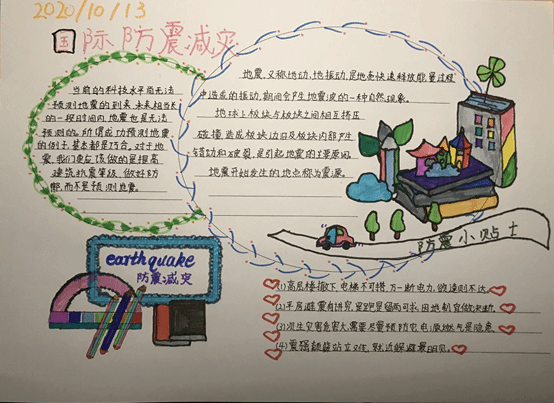 2020/10/13
国际防震减灾
当前的科技水平尚无法
预测地震的到来,未来相当长
的一段时间内,地震也是无法
预测的。所谓成功预测地震
的例子,基本都是巧合。对于地
震,我们更应该做的是提高
建筑抗震等级、做好防
御,而不是预测地震。
地震,又称地动、地振动,是地壳快速释放能量过程
中造成的振动,期间会产生地震波的一种自然现象。
地球上板块与板块之间相互挤压
碰撞,造成板块边沿及板块内部产生
错动和破裂,是引起地震的主要原因。
地震开始发生的地点称为震源。
防震小贴士
earthquake
防震减灾
(1)高层楼撤下,电梯不可搭,万一断电力,欲速则不达。
(2)平房避震有讲究,是跑是留两可求,因地制宜做决断。
(3)次生灾害危害大,需要尽量预防它,电源燃气是隐患。
(4)震强颠簸站立难,就近躲避最明见。